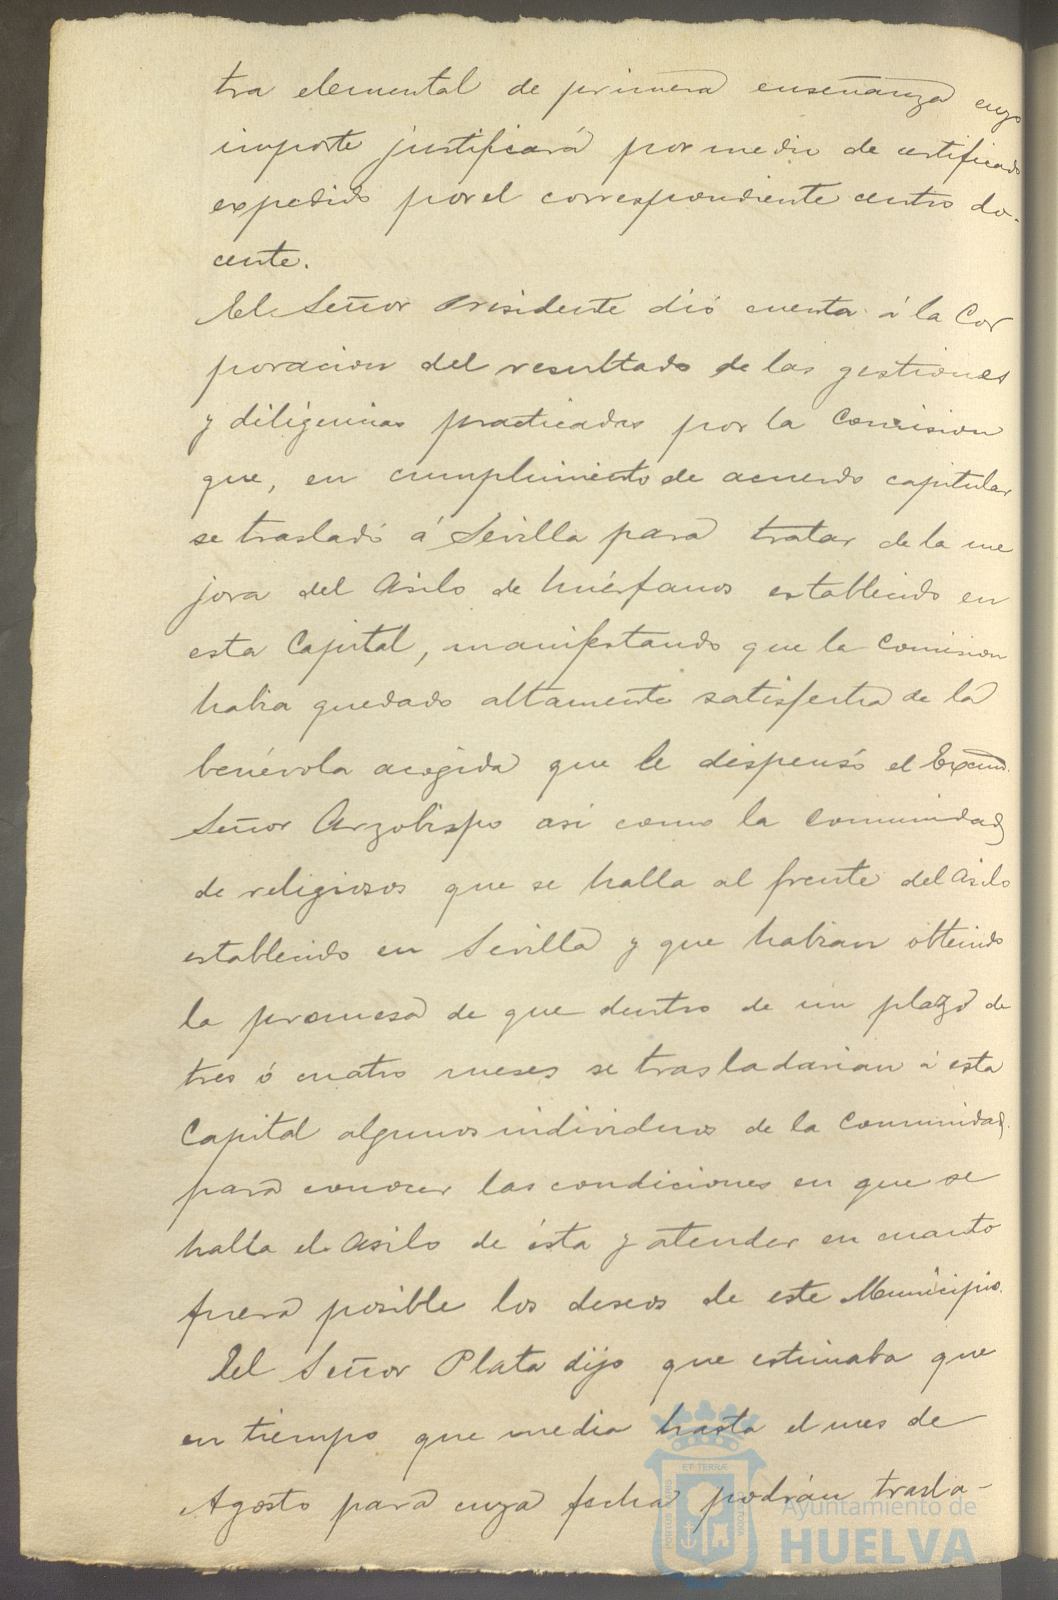 tra elemental de primera enseñanza cuyo
importe justificará por medio de certificado
expedido por el correspondiente centro do-
cente.
El Señor Presidente dió cuenta á la Cor
poracion del resultado de las gestiones
y diligencias practicadas por la Comision
que, en cumplimiento de acuerdo capitular
se trasladó á Sevilla para tratar de la me
jora del Asilo de huérfanos establecido en
esta Capital, manifestando que la Comision
habia quedado altamente satisfecha de la
benévola acogida que le dispensó el Excmo.
Señor Arzobispo asi como la Comunidad
de religiosos que se halla al frente del Asilo
establecido en Sevilla y que habian obtenido
la promesa de que dentro de un plazo de
tres ó cuatro meses se trasladarian á esta
Capital algunos individuos de la Comunidad
para conocer las condiciones en que se
halla el Asilo de ésta y atender en cuanto
fuera posible los deseos de este Municipio.
El Señor Plata dijo que estimaba que
en tiempo que media hasta el mes de
Agosto para cuya fecha podrán trasla-
Ayuntamiento de
HUELVA